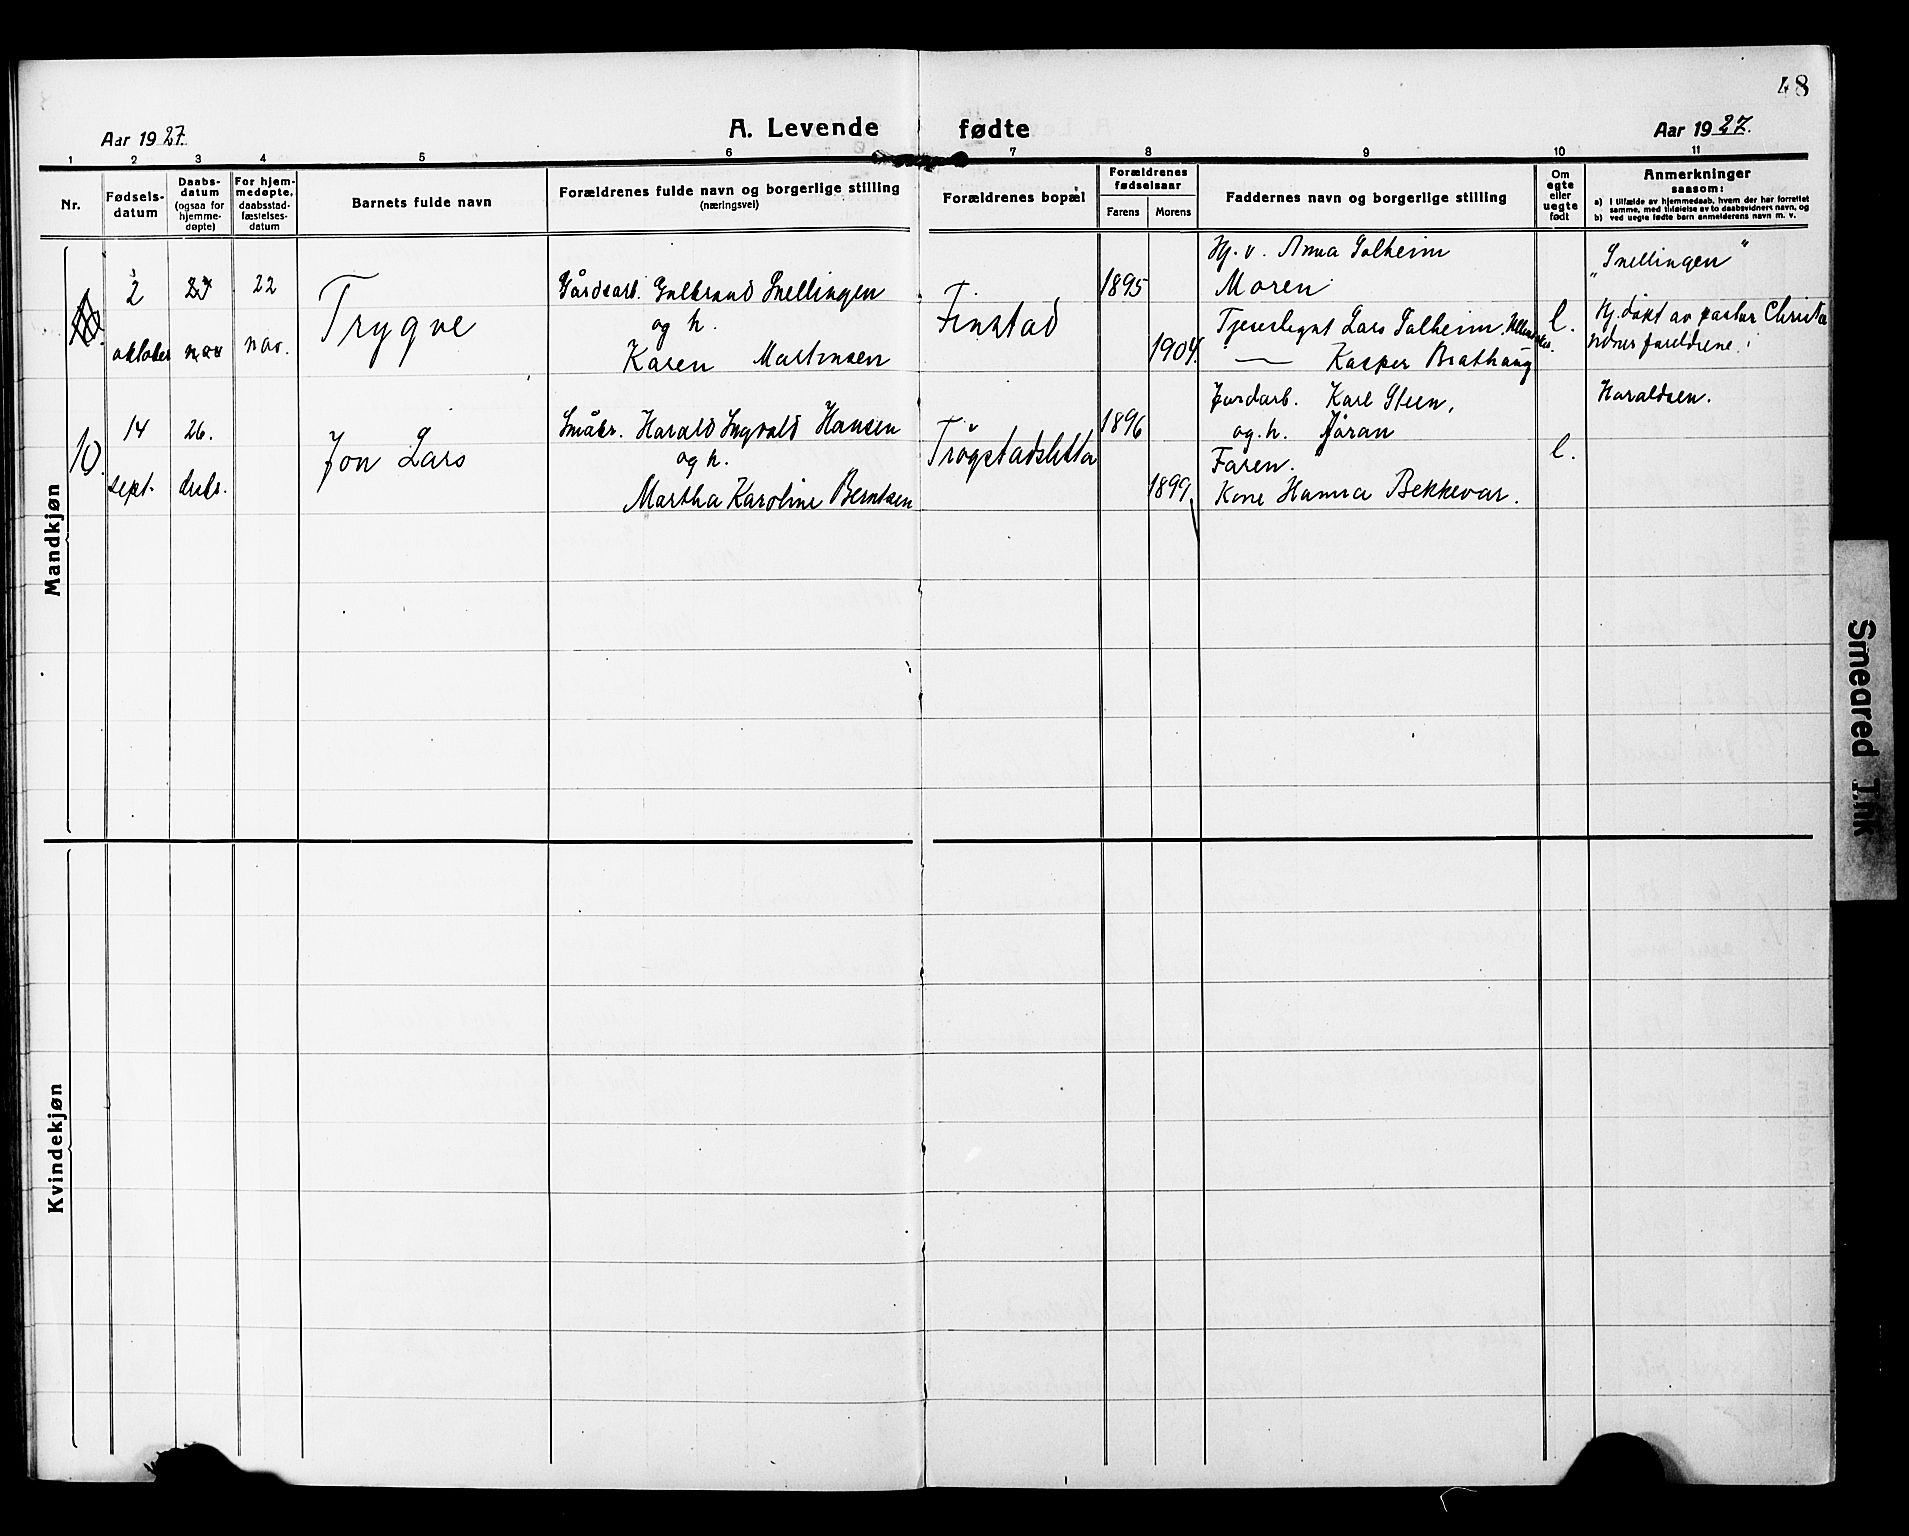 48
A. Levende fødte
Aar 1927.
Aar 1927.
1 2 3 4 5 6 7 8 9 10 11
Nr.
Fødsels-
datum
Daabs-
datum
(ogsaa for
hjemme-
døpte)
For hjem-
medøpte,
daabsstad-
fæstelses-
datum
Barnets fulde navn
Forældrenes fulde navn og borgerlige stilling
(næringsvei)
Forældrenes bopæl
Forældrenes
fødselsaar
Farens
Morens
Faddernes navn og borgerlige stilling
Om
egte
eller
uegte
født
Anmerkninger
saasom:
a) I tilfælde av hjemmedaab, hvem der har forrettet
samme, med tilføielse av to daabsvidners navn, og
b) ved uegte fødte barn anmelderens navn m. v.
Mandkjøn
2
oktober
27
nov
22
nov.
Trygve
Gårdsarb. Gulbrand Snellingen
og h.
Karen Martinsen
Finstad
1895
1904.
Hj. v. Anna Solheim
Moren
Tjenestegut Lars Solheim,
— Kasper Brathaug
e.
"Snellingen"
Hj. døpt av pastor Christie
foreldrene.
10.
14
sept.
26.
desbr.
Jon Lars
Småbr. Harald Ingvald Hansen
og h.
Martha Karoline Berntsen
Trøgstadsletta
1896
1899
Jordarb. Karl Steen,
og h. Jøran
Faren.
Kone Hanna Bekkevar.
e.
Haraldsen.
Kvindekjøn
Smeared Ink